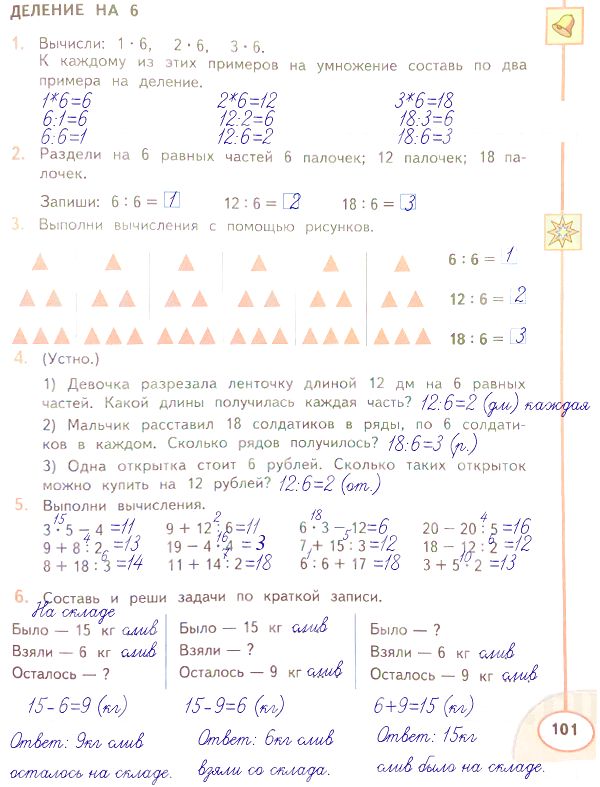 ДЕЛЕНИЕ НА 6
1. Вычисли: 1 · 6, 2 · 6, 3 · 6.
К каждому из этих примеров на умножение составь по два
примера на деление.
1*6=6 2*6=12 3*6=18
6:1=6 12:2=6 18:3=6
6:6=1 12:6=2 18:6=3
2. Раздели на 6 равных частей 6 палочек; 12 палочек; 18 па-
лочек.
Запиши: 6 : 6 = 1 12 : 6 = 2 18 : 6 = 3
3. Выполни вычисления с помощью рисунков.
6 : 6 = 1
12 : 6 = 2
18 : 6 = 3
4. (Устно.)
1) Девочка разрезала ленточку длиной 12 дм на 6 равных
частей. Какой длины получилась каждая часть? 12:6=2 (дм) каждая
2) Мальчик расставил 18 солдатиков в ряды, по 6 солдати-
ков в каждом. Сколько рядов получилось? 18:6=3 (р.)
3) Одна открытка стоит 6 рублей. Сколько таких открыток
можно купить на 12 рублей? 12:6=2 (от.)
5. Выполни вычисления.
15 2 18 4
3 · 5 – 4 =11 9 + 12 : 6=11 6 · 3 – 12=6 20 – 20 : 5 =16
4 16 5 6
9 + 8 : 2 =13 19 – 4 · 4 = 3 7 + 15 : 3 =12 18 – 12 : 2 =12
6 7 1 10
8 + 18 : 3 =14 11 + 14 : 2 =18 6 : 6 + 17 =18 3 + 5 · 2 =13
6. Составь и реши задачи по краткой записи.
На складе
Было — 15 кг слив Было — 15 кг слив Было — ?
Взяли — 6 кг слив Взяли — ? Взяли — 6 кг слив
Осталось — ? Осталось — 9 кг слив Осталось — 9 кг слив
15-6=9 (кг) 15-9=6 (кг) 6+9=15 (кг)
Ответ: 9кг слив Ответ: 6кг слив Ответ: 15кг
осталось на складе. взяли со склада. слив было на складе.
101